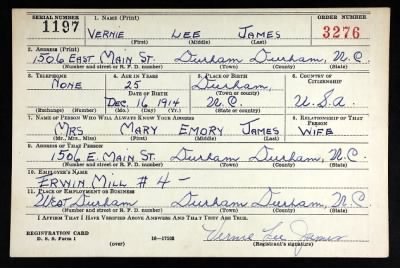 SERIAL NUMBER 1. NAME (Print) ORDER NUMBER
1197 VERNIE LEE JAMES 3276
(First) (Middle) (Last)
2. ADDRESS (Print)
1506 EAST MAIN ST. Durham Durham, N.C.
(Number and street or R. F. D. number) (Town) (County) (State)
3. TELEPHONE 4. AGE IN YEARS 5. PLACE OF BIRTH 6. COUNTRY OF CITIZENSHIP
NONE 25 Durham,
DATE OF BIRTH (Town or county)
DEC. 16 1914 N.C. U.S.A.
(Exchange) (Number) (Mo.) (Day) (Yr.) (State or country)
7. NAME OF PERSON WHO WILL ALWAYS KNOW YOUR ADDRESS 8. RELATIONSHIP OF THAT PERSON
MRS MARY EMORY JAMES WIFE
(Mr., Mrs., Miss) (First) (Middle) (Last)
9. ADDRESS OF THAT PERSON
1506 E. MAIN ST. Durham Durham, N.C
(Number and street or R. F. D. number) (Town) (County) (State)
10. EMPLOYER'S NAME
ERWIN MILL # 4 -
11. PLACE OF EMPLOYMENT OR BUSINESS
West Durham Durham Durham, N.C.
(Number and street or R. F. D. number) (Town) (County) (State)
I AFFIRM THAT I HAVE VERIFIED ABOVE ANSWERS AND THAT THEY ARE TRUE.
REGISTRATION CARD Vernie Lee James
D. S. S. Form 1 (over) 16-17105 (Registrant's signature)